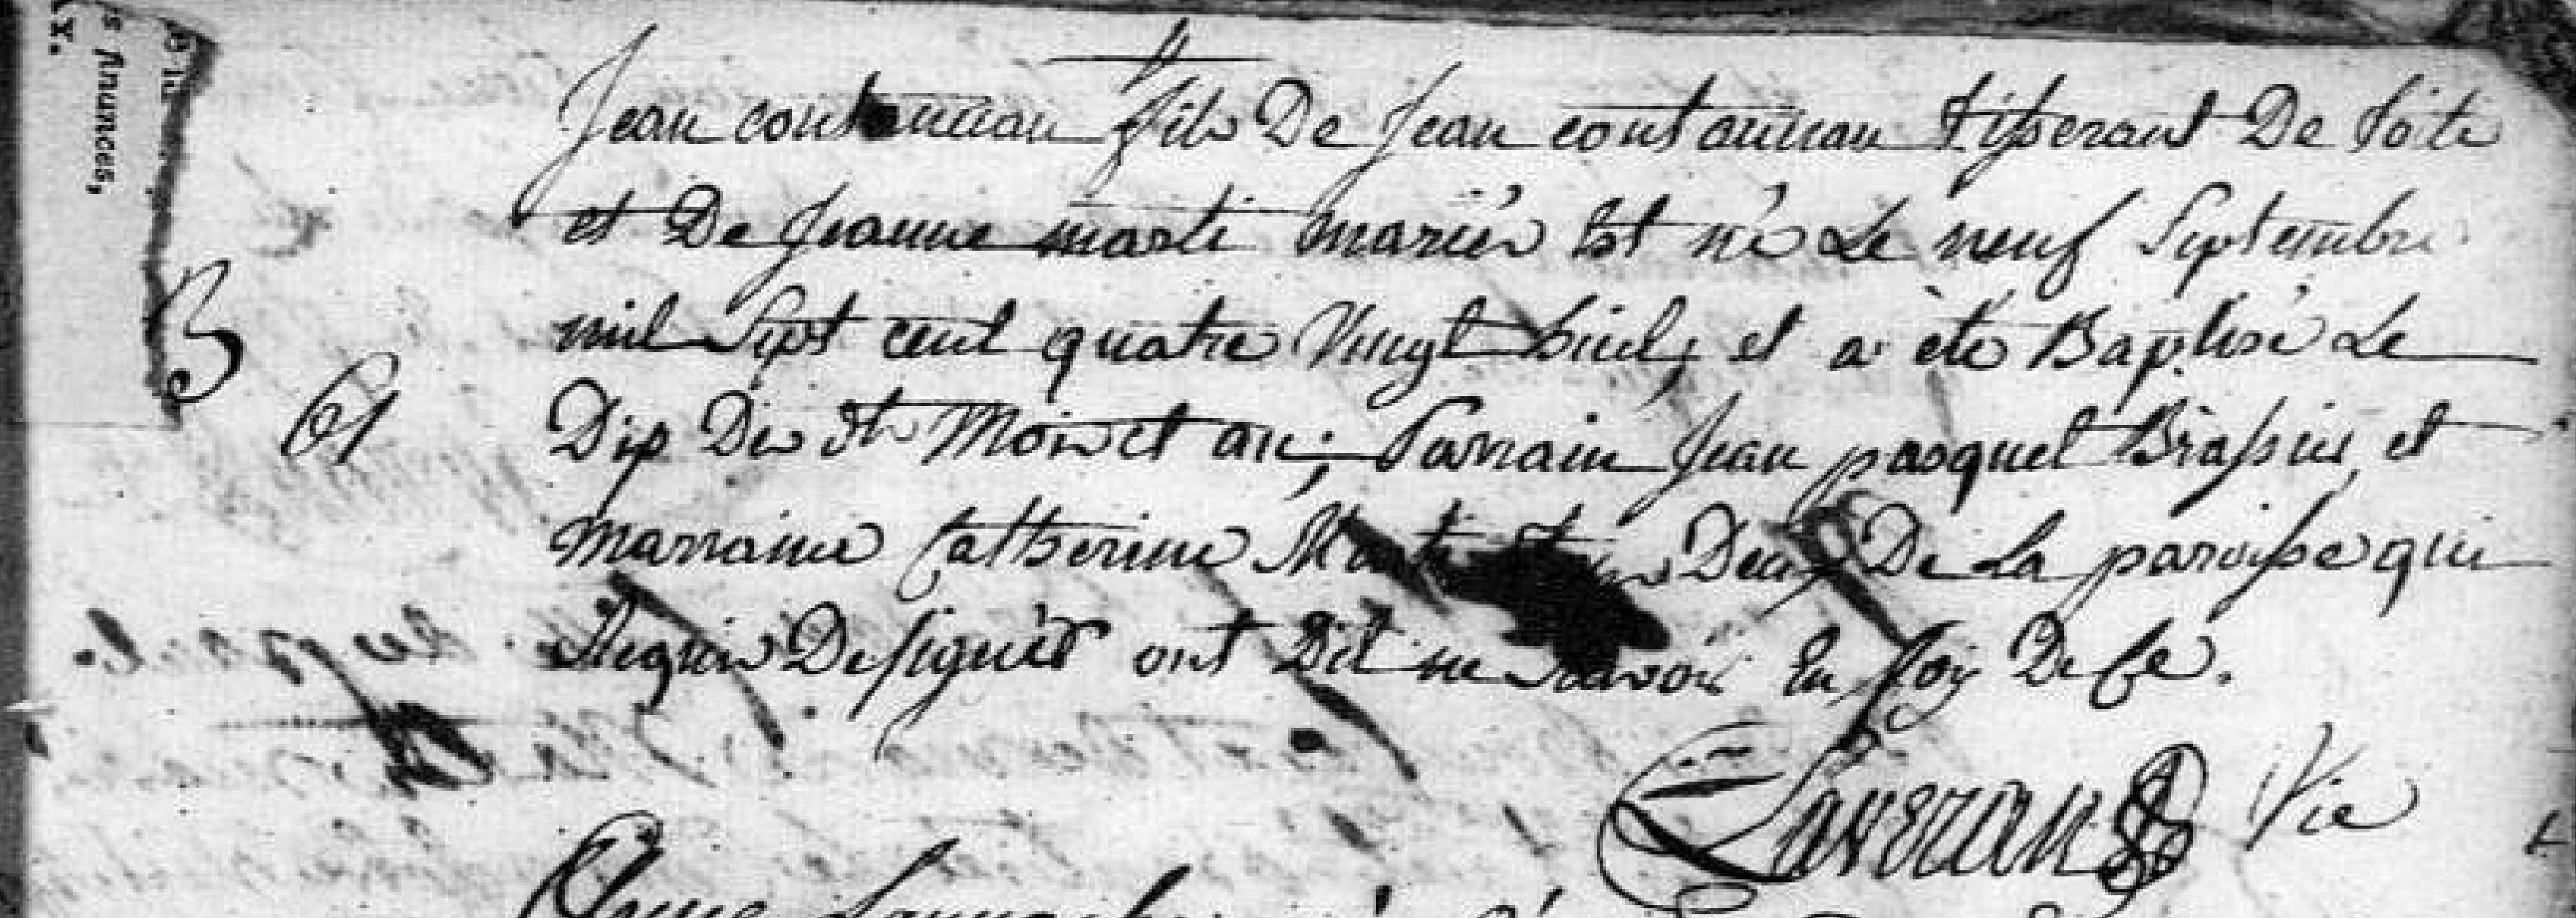 Jean contanceau fils De Jean contanceau tisserant De
et De Jeanne marti mariés est né Le neuf Septembre
mil Sept cent quatre vingt huit, et a été Baptisé Le
B
61
Dix Des dts Mois et an; Parrain Jean pasquet Brassier, et
marraine Catherine Marti Deux De La paroisse qui
Requis De signer ont Dit ne savoir En foy De Ce.
Laveran Vic